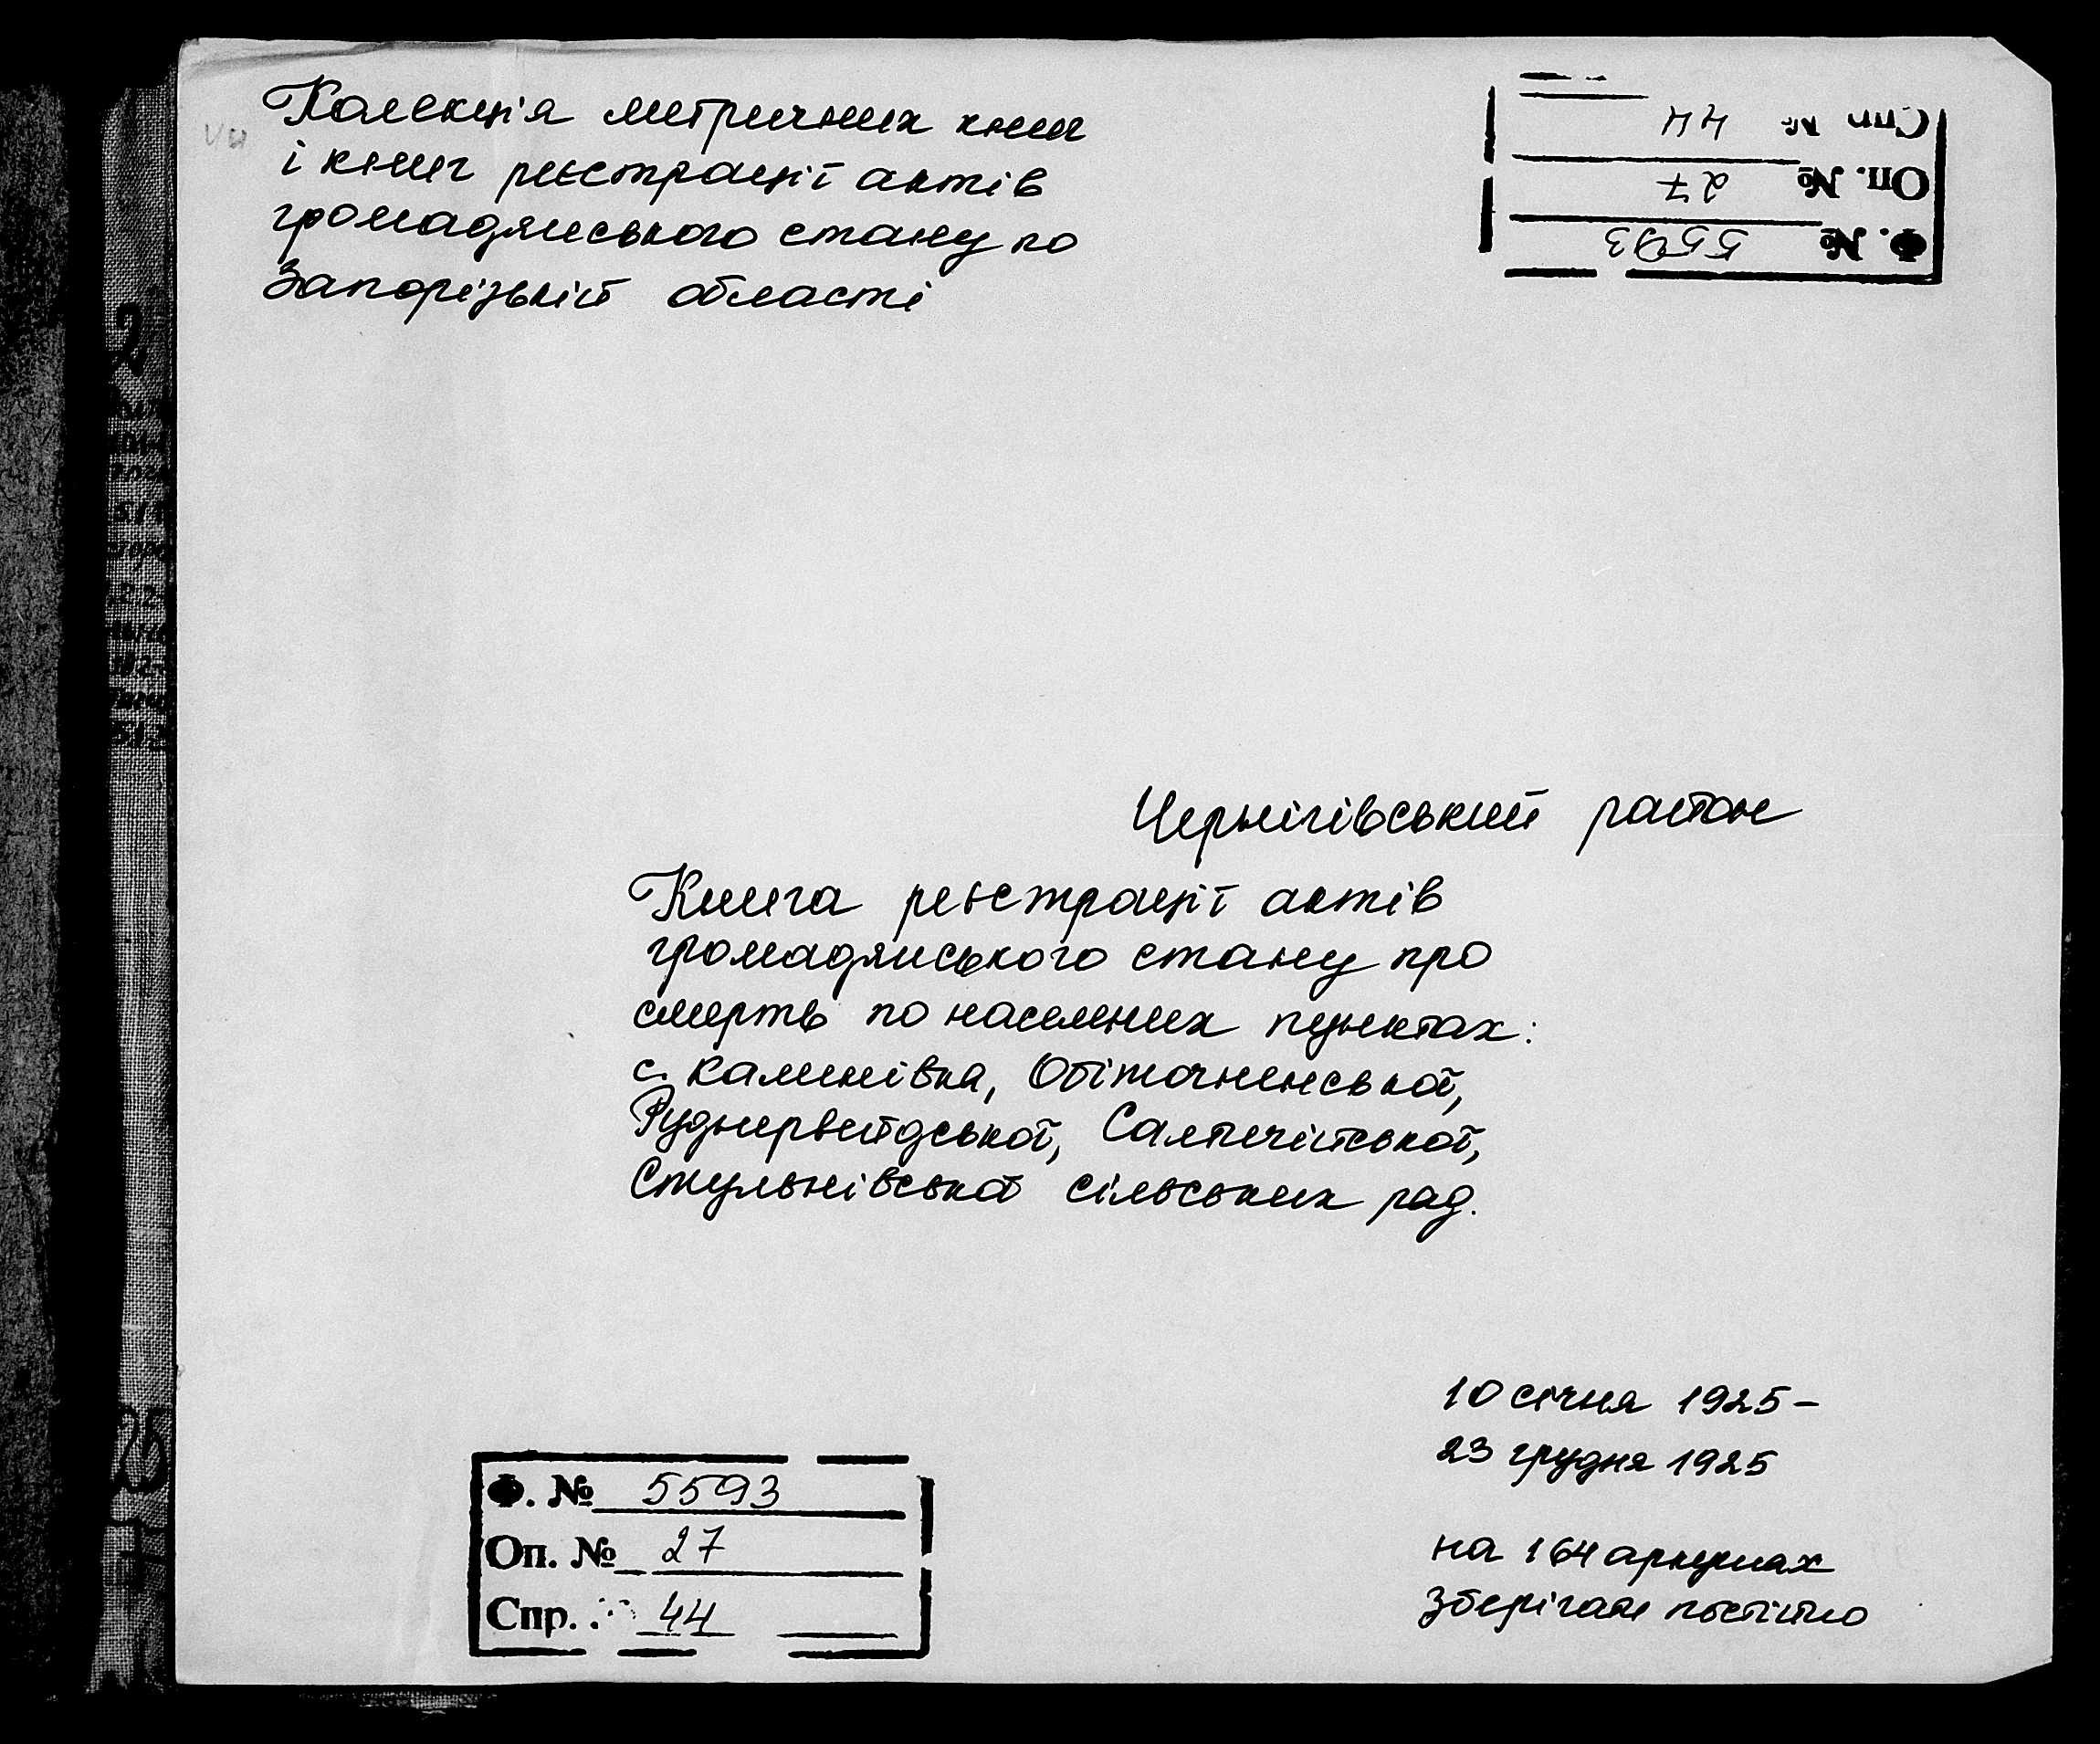 Колекція метричних книг
і книг реєстрації актів
громадянського стану по
Запорізькій області
Спр № 44
Оп. № 27
Ф. № 5593
Чернігівський район
Книга реєстрації актів
громадянського стану про
смерть по населених пунктах:
с. Каменівка, Обіточненської,
Руднервейдської, Салтичійської,
Стульнівської сільських рад.
10 січня 1925 –
23 грудня 1925
на 164 аркушах
Зберігати постійно
Ф. № 5593
Оп. № 27
Спр. 44